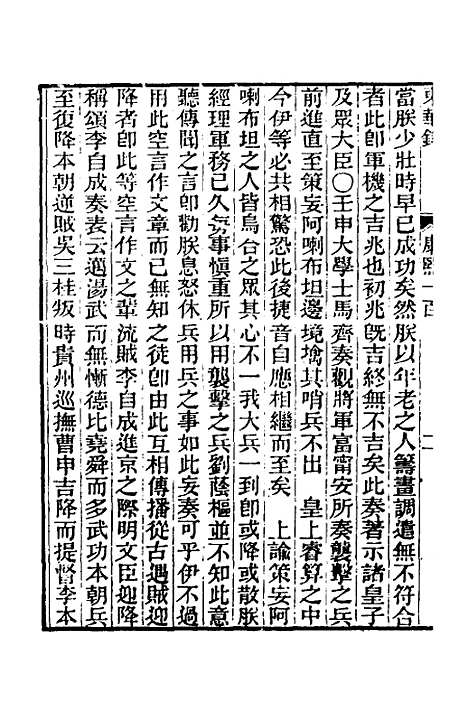 東華錄　康熙一百　二
當朕少壯時早已成功矣然朕以年老之人籌畫調遣無不符合
者此卽軍機之吉兆也初兆旣吉終無不吉矣此奏著示諸皇子
及眾大臣〇壬申大學士馬齊奏觀將軍富甯安所奏襲擊之兵
前進直至策妄阿喇布坦邊境擒其哨兵不出　皇上睿算之中
今伊等必共相驚恐此後捷音自應相繼而至矣　上諭策妄阿
喇布坦之人皆烏合之眾其心不一我大兵一到卽或降或散朕
經理軍務已久每事愼重所以用襲擊之兵劉蔭樞並不知此意
聽傳聞之言卽勸朕息怒休兵用兵之事如此妄奏可乎伊不過
用此空言作文章而已無知之徒卽由此互相傳播從古遇賊迎
降者卽此等空言作文之輩流賊李自成進京之際明文臣迎降
稱頌李自成奏表云邁湯武而無慚德比堯舜而多武功本朝兵
至復降本朝逆賊吳三桂叛時貴州巡撫曹申吉降而提督李本